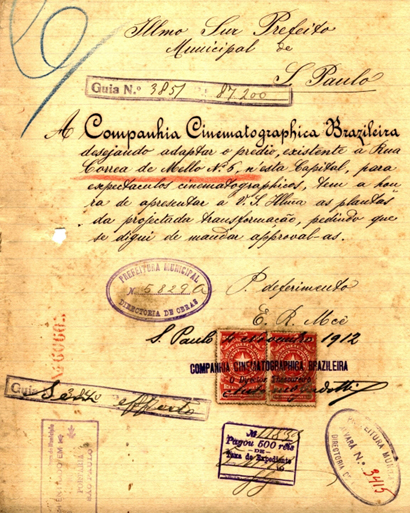 Illmo Snr Prefeito
Municipal de
S. Paulo
Guia N.º 3851 87,200
A Companhia Cinematographica Brazileira
desejando adaptar o predio, existente à Rua
Correa de Mello Nº 6, n'esta Capital, para
espectaculos cinematographicos, tem a hon-
ra de apresentar à V. S. Illma as plantas
da projectada transformação, pedindo que
se digne de mandar approval-as.
PREFEITURA MUNICIPAL
Nº 58290
DIRECTORIA DE OBRAS
P. deferimento
E. R. Mcê
S. Paulo novembro 1912
COMPANHIA CINEMATOGRAPHICA BRAZILEIRA
O Director Thesoureiro
Guia
Nº 11835
Pagou 500 réis
DE
Taxa de Expediente
PREFEITURA MUNI
Nº 3415
DIRECTORIA
PORTARIA
SÃO PAULO